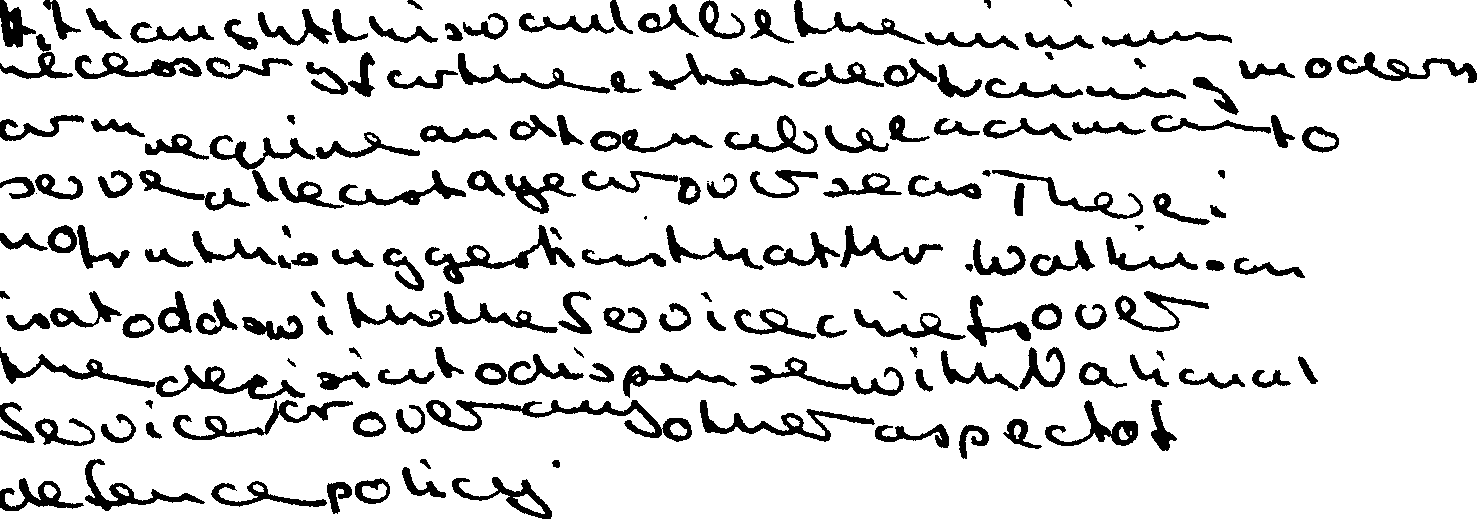 It thought this would be the minimum
necessary for the extended training modern
arms require and to enable each man to
serve at least a year overseas. There is
no truth in suggestions that Mr. Watkinson
is at odds with the Service chiefs over
the decision to dispense with National
Service, or over any other aspect of
defence policy.